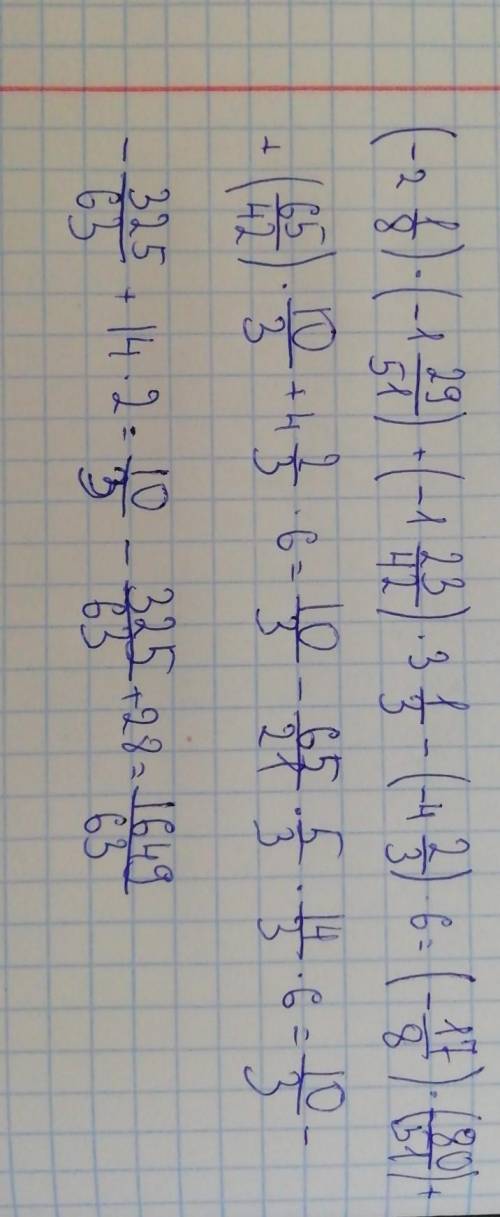 (-2 1/8) · (-1 29/51) + (-1 23/42) · 3 1/3 - (-4 2/3) · 6 = (-17/8) · (80/51) +
+ (65/42) · 10/3 + 4 2/3 · 6 = 10/3 - 65/21 · 5/3 · 14/3 · 6 = 10/3 -
- 325/63 + 14 · 2 = 10/3 - 325/63 + 28 = 1649/63